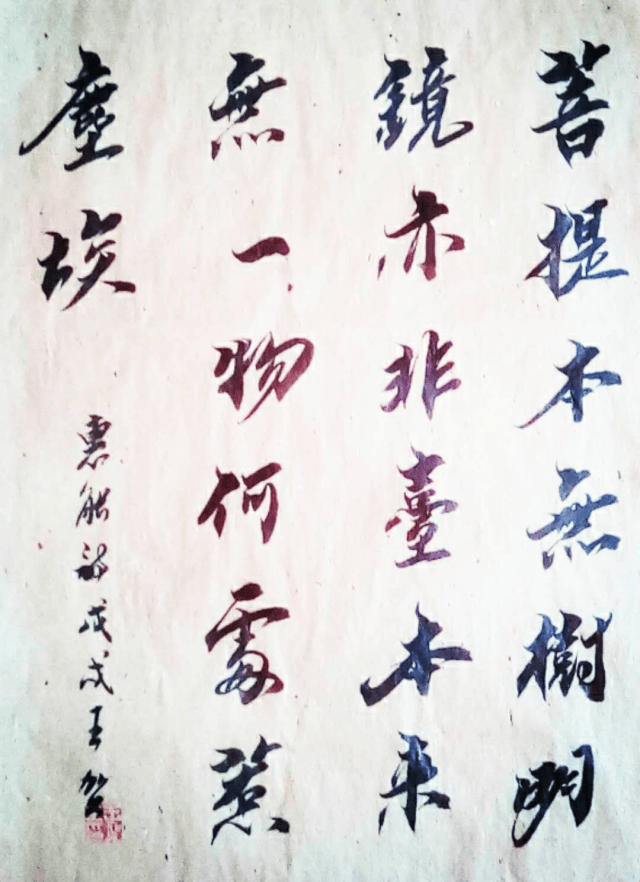 菩提本無樹明
鏡亦非臺本来
無一物何處惹
塵埃
惠能詩戊戌王賀